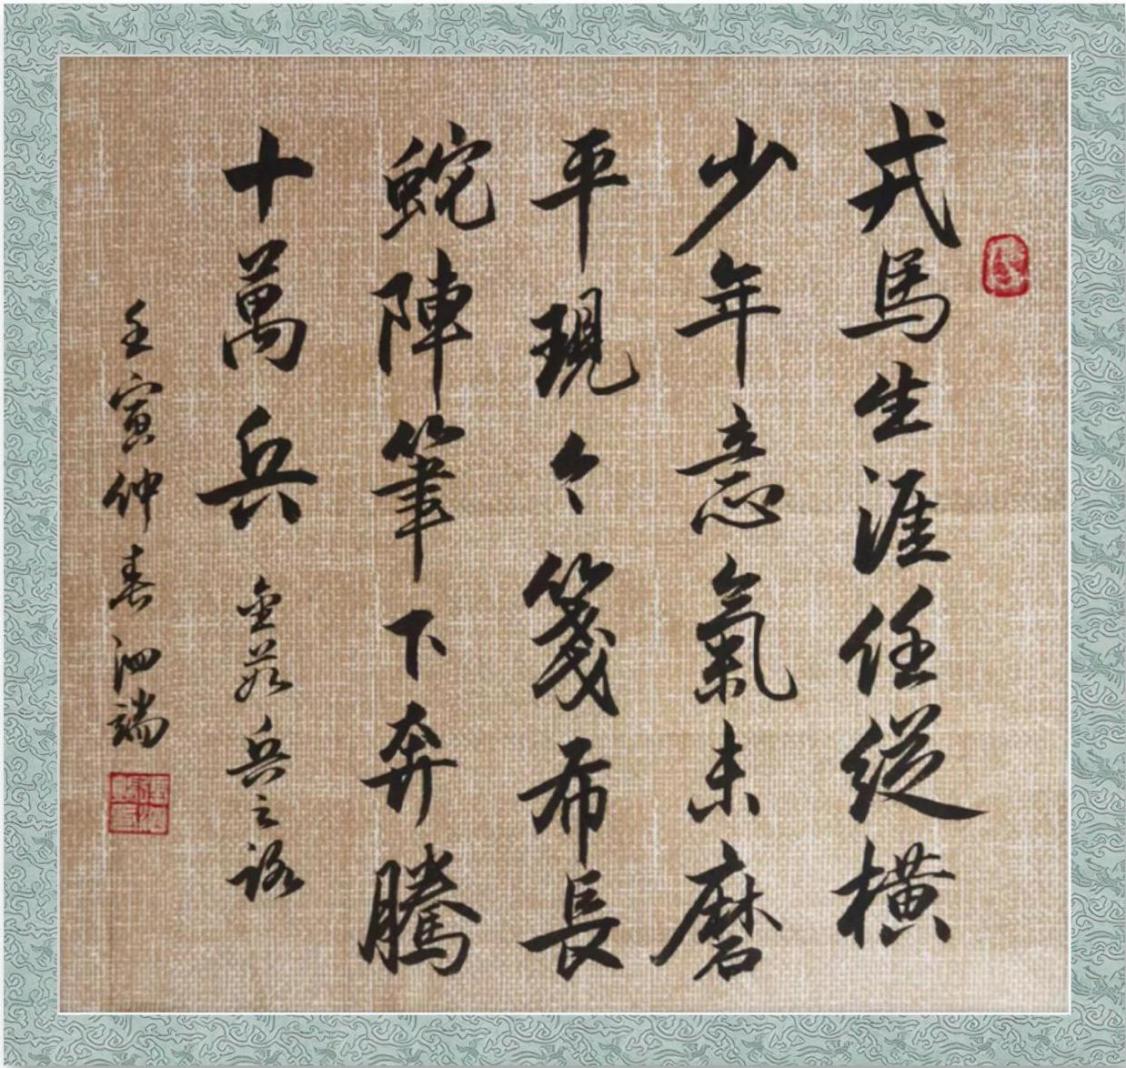 戎馬生涯任縱橫
少年意氣未磨
平現今箋布長
蛇陣筆下奔騰
十萬兵 兵之
壬寅仲春泗端